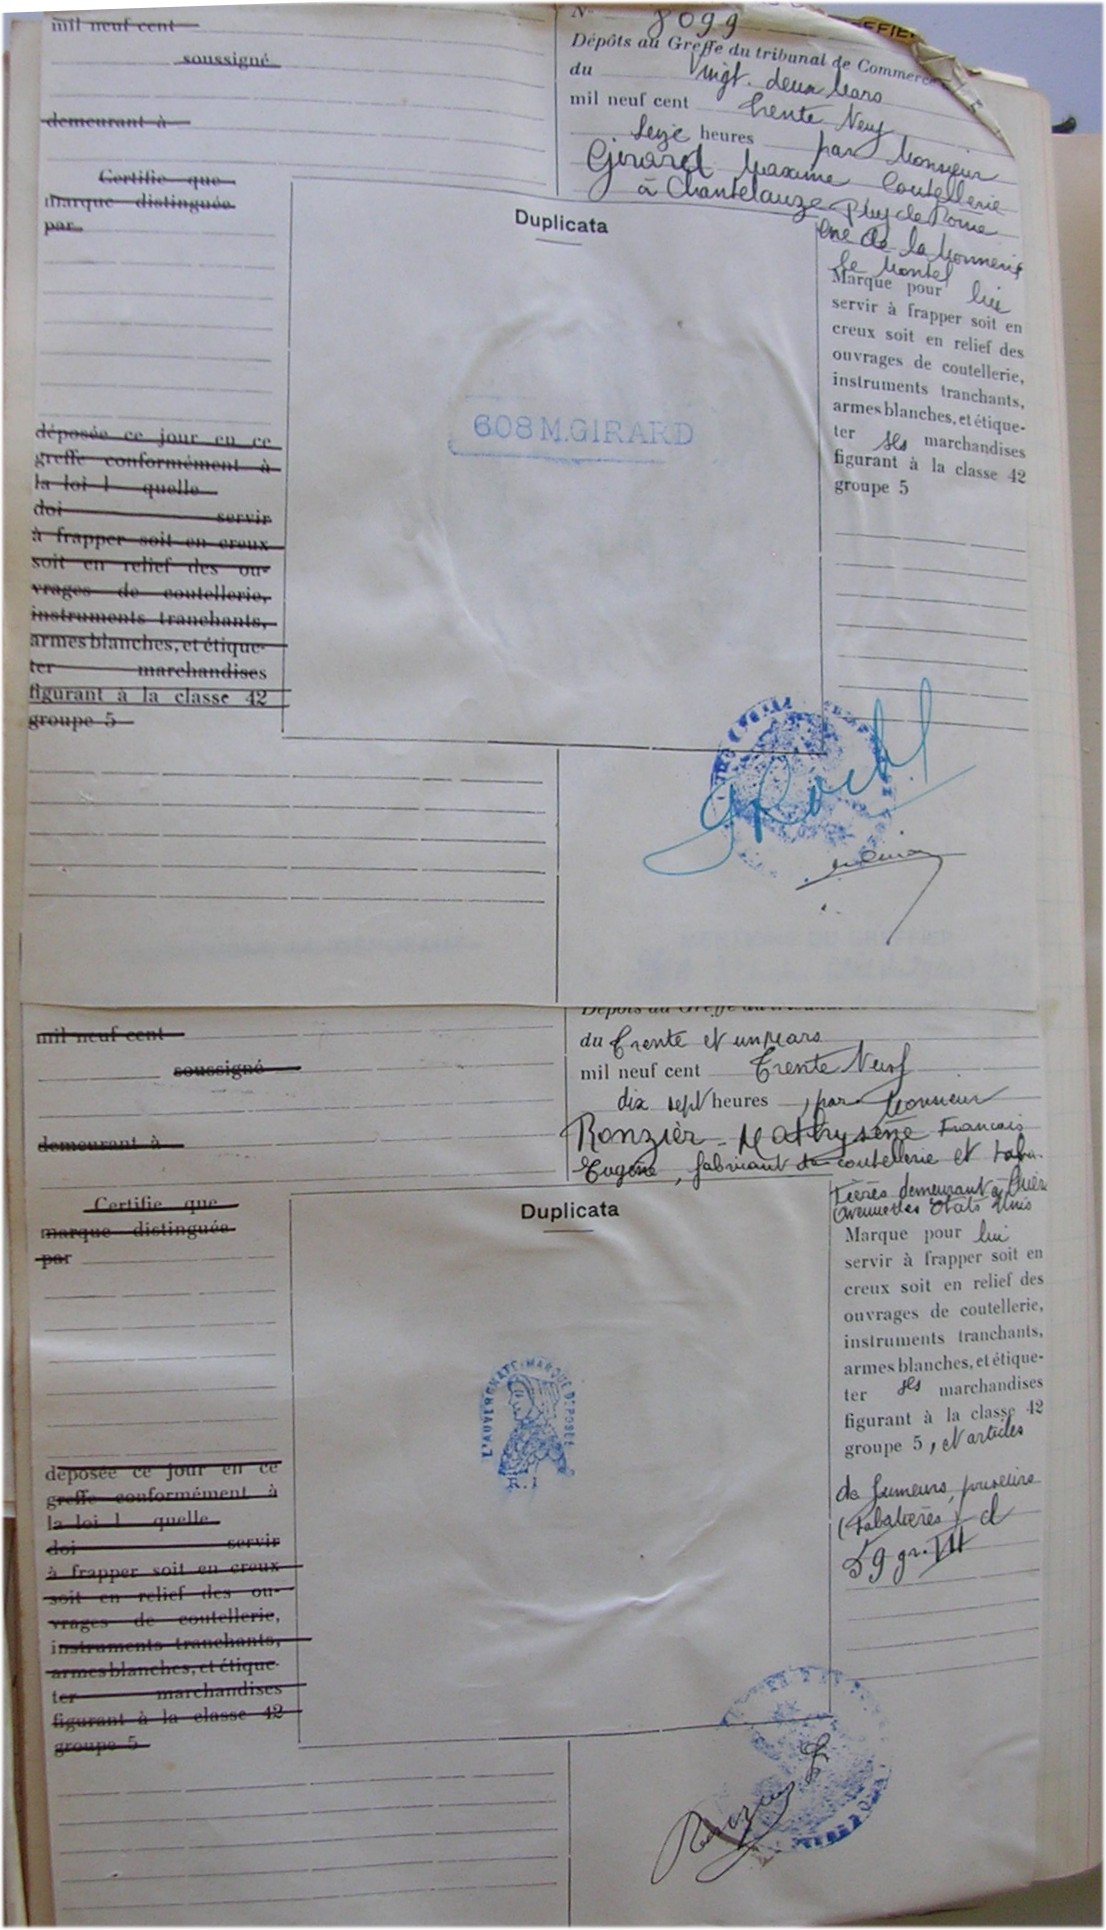 mil neuf cent
soussigné
demeurant à
Certifie que
marque distinguée
par
déposée ce jour en ce
greffe conformément à
la loi l quelle
doi servir
à frapper soit en creux
soit en relief des ou-
vrages de coutellerie,
instruments tranchants,
armes blanches, et étique-
ter marchandises
figurant à la classe 42
groupe 5
N° 8099
Dépôts au Greffe du tribunal de Commerce
du Vingt deux Mars
mil neuf cent trente Neuf
Seize heures par Monsieur
Girard Maxime Coutellerie
à Chantelauze Puy de Dôme
Cne de la Monnerie
le Montel
Marque pour lui
servir à frapper soit en
creux soit en relief des
ouvrages de coutellerie,
instruments tranchants,
armes blanches, et étique-
ter ses marchandises
figurant à la classe 42
groupe 5
Duplicata
608 M.GIRARD
mil neuf cent
soussigné
demeurant à
Certifie que
marque distinguée
par
déposée ce jour en ce
greffe conformément à
la loi l quelle
doi servir
à frapper soit en creux
soit en relief des ou-
vrages de coutellerie,
instruments tranchants,
armes blanches, et étique-
ter marchandises
figurant à la classe 42
groupe 5
Dépôts au Greffe du tribunal de
du trente et un Mars
mil neuf cent Trente Neuf
dix sept heures, par Monsieur
Ronzier Mathysène Francais
Eugène, fabricant de coutellerie et taba-
tières demeurant à
Avenue des Etats Unis
Marque pour lui
servir à frapper soit en
creux soit en relief des
ouvrages de coutellerie,
instruments tranchants,
armes blanches, et étique-
ter ses marchandises
figurant à la classe 42
groupe 5, et articles
de fumeurs, priseurs
(tabatières) cl
59 gr. VII
Duplicata
L'AUVERGNATE-MARQUE DEPOSEE
R.I